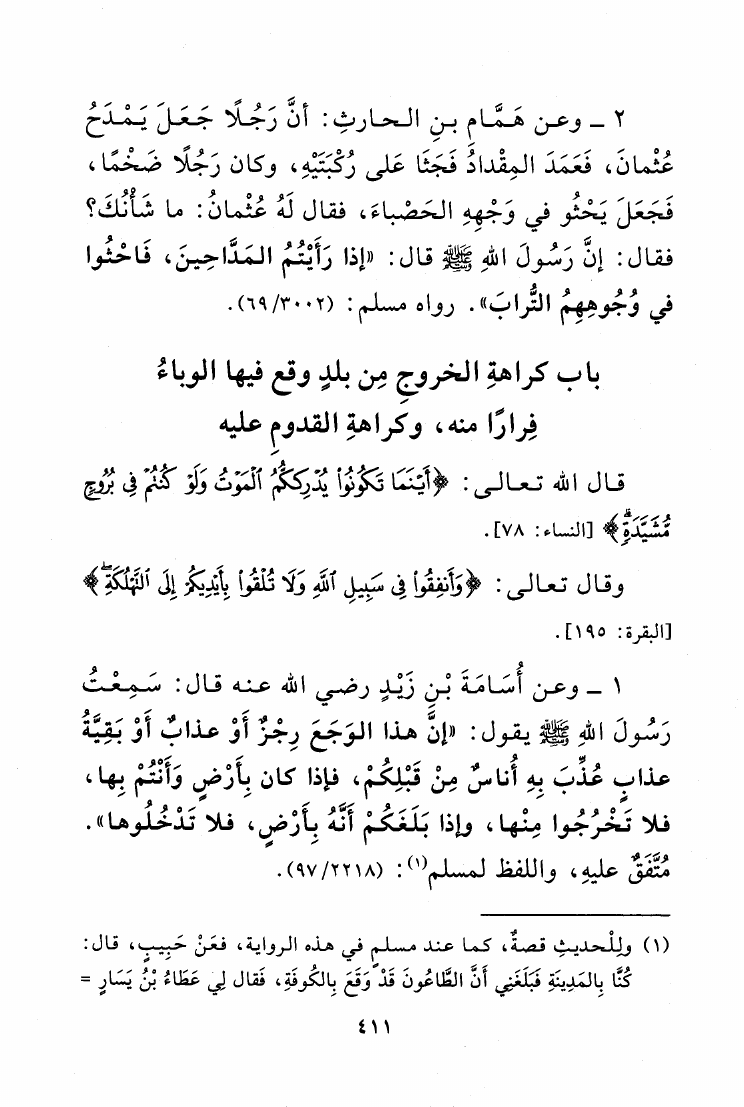 ٢ ـ وعن هَمَّامِ بنِ الحارثِ: أنَّ رَجُلًا جَعَلَ يَمْدَحُ
عُثْمانَ، فَعَمَدَ المِقْدادُ فَجَثَا عَلى رُكْبَتَيْهِ، وكان رَجُلًا ضَخْمًا،
فَجَعَلَ يَحْثُو في وَجْهِهِ الحَصْباءَ، فقال لَهُ عُثْمانُ: ما شَأْنُكَ؟
فقال: إنَّ رَسُولَ اللهِ ﷺ قال: «إذا رَأَيْتُمُ المَدَّاحِينَ، فَاحْثُوا
في وُجُوهِهِمُ التُّرابَ». رواه مسلم: (٦٩/٣٠٠٢).
باب كراهةِ الخروجِ مِن بلدٍ وقع فيها الوباءُ
فِرارًا منه، وكراهةِ القدومِ عليه
قال الله تعالى: ﴿أَيْنَمَا تَكُونُوا۟ يُدْرِككُّمُ ٱلْمَوْتُ وَلَوْ كُنتُمْ فِى بُرُوجٍ
مُّشَيَّدَةٍ ۗ﴾ [النساء: ٧٨].
وقال تعالى: ﴿وَأَنفِقُوا۟ فِى سَبِيلِ ٱللَّهِ وَلَا تُلْقُوا۟ بِأَيْدِيكُمْ إِلَى ٱلتَّهْلُكَةِ ۛ﴾
[البقرة: ١٩٥].
١ ـ وعن أُسَامَةَ بْنِ زَيْدٍ رضي الله عنه قال: سَمِعْتُ
رَسُولَ اللهِ ﷺ يقول: «إنَّ هذا الوَجَعَ رِجْزٌ أَوْ عذابٌ أَوْ بَقِيَّةُ
عذابٍ عُذِّبَ بِهِ أُناسٌ مِنْ قَبْلِكُمْ، فإذا كان بِأَرْضٍ وَأَنْتُمْ بِها،
فلا تَخْرُجُوا مِنْها، وإذا بَلَغَكُمْ أَنَّهُ بِأَرْضٍ، فلا تَدْخُلُوها».
مُتَّفَقٌ عليهِ، واللفظ لمسلم(١): (٩٧/٢٢١٨).
(١) ولِلْحديثِ قصةٌ، كما عند مسلمٍ في هذه الرواية، فعَنْ حَبِيبٍ، قال:
كُنَّا بِالمَدِينَةِ فَبَلَغَنِي أَنَّ الطَّاعُونَ قَدْ وَقَعَ بِالكُوفَةِ، فَقال لِي عَطَاءُ بْنُ يَسَارٍ =
٤١١